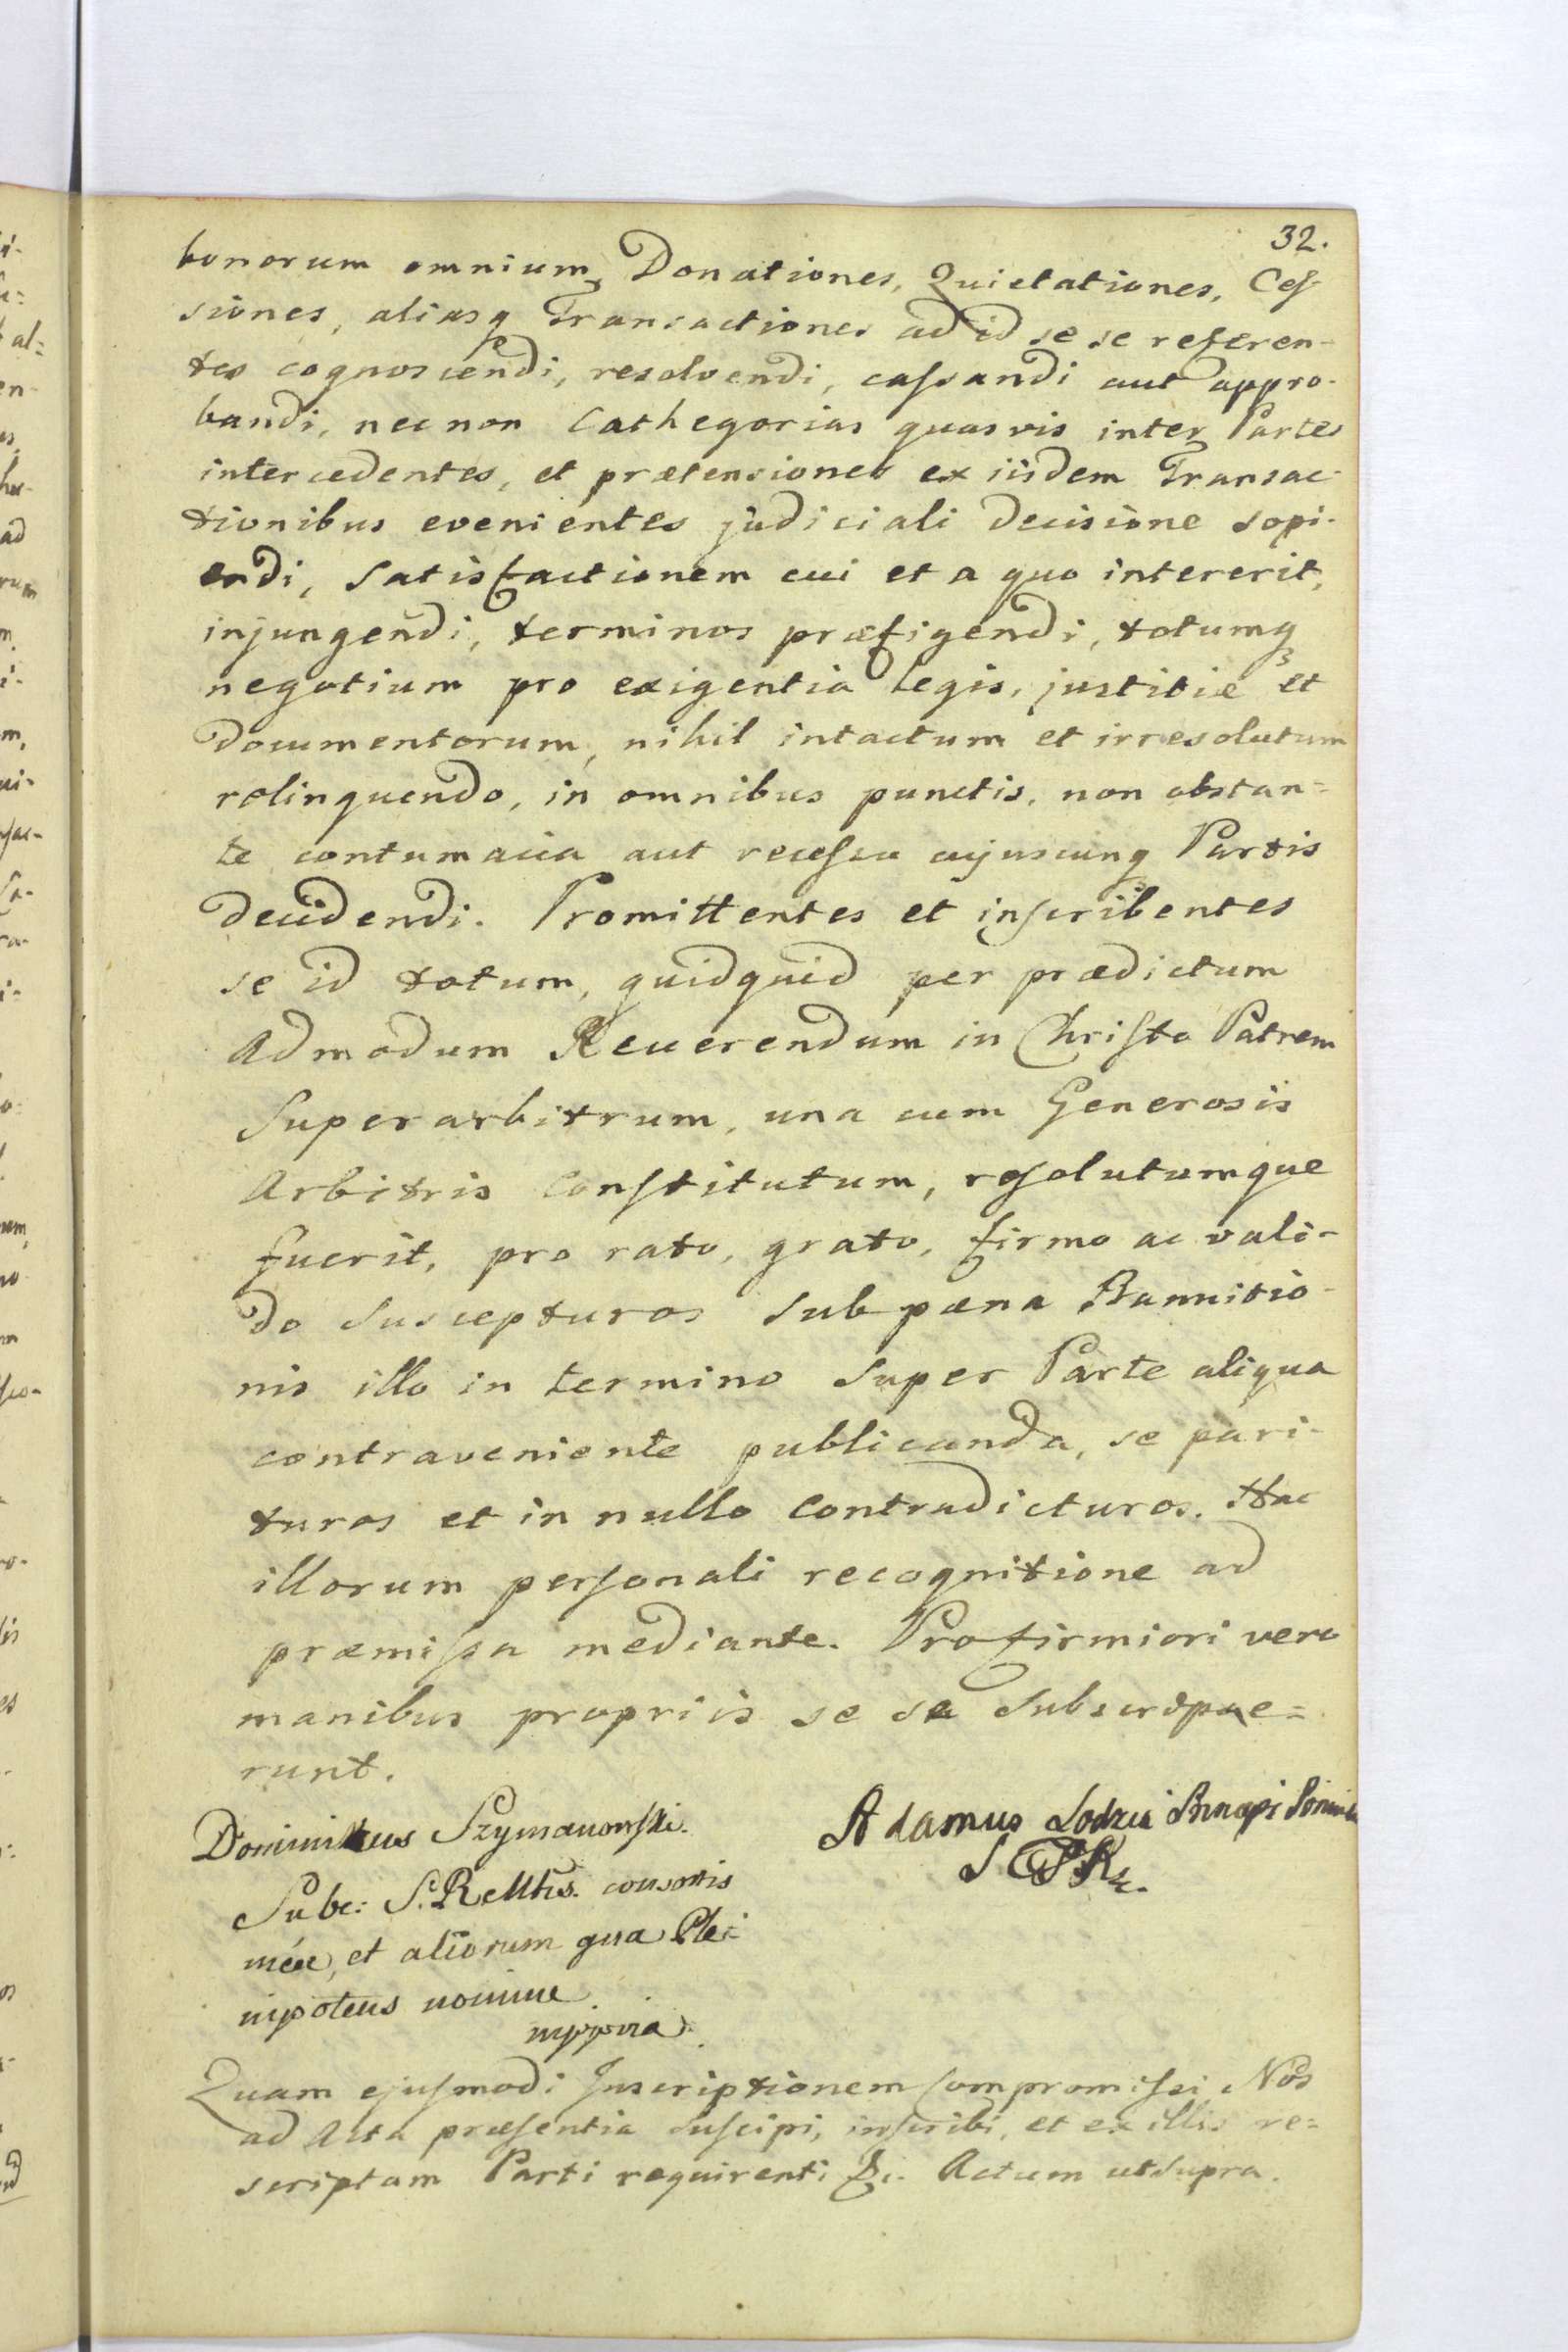 32.
bonorum omnium, Donationes, Quietationes, Ces-
siones, aliasq Transactiones ad id se se referen-
tes cognoscendi, resolvendi, cassandi aut appro-
bandi, nec non Cathegorias quasvis inter Partes
intercedentes, et prætensiones ex iisdem Transac-
tionibus evenientes judiciali decisione sopi-
endi, Satisfactionem cui et a quo intererit,
injungendi, terminos præfigendi, totumq
negotium pro exigentia Legis, justitiæ et
documentorum, nihil intactum et irresolutum
relinquendo, in omnibus punctis, non obstan=
te contumacia aut recessu cujuscunq Partis
decidendi. Promittentes et inscribentes
se id totum, quidquid per prædictum
Admodum Reverendum in Christo Patrem
Superarbitrum, una cum Generosis
Arbitris Constitutum, resolutumque
fuerit, pro rato, grato, firmo ac vali-
do Suscepturos Sub pæna Bannitio-
nis illo in termino Super Parte aliqua
contraveniente publicanda, se pari-
turos et in nullo Contradicturos. Hac
illorum personali recognitione ad
præmissa mediante. Pro firmiori vero
manibus propriis se se Subscripse=
runt.
Dominikus Szymanowski.
Adamus Lodzia
Subc: S. Relltus. consortis
meæ, et aliorum qua Ple-
nipotens nomine
mppria
Quam ejusmodi Inscriptionem Compromissi Nos
ad Acta præsentia Suscipi, inscribi, et ex illis re=
scriptam Parti requirenti &c. Actum ut Supra.